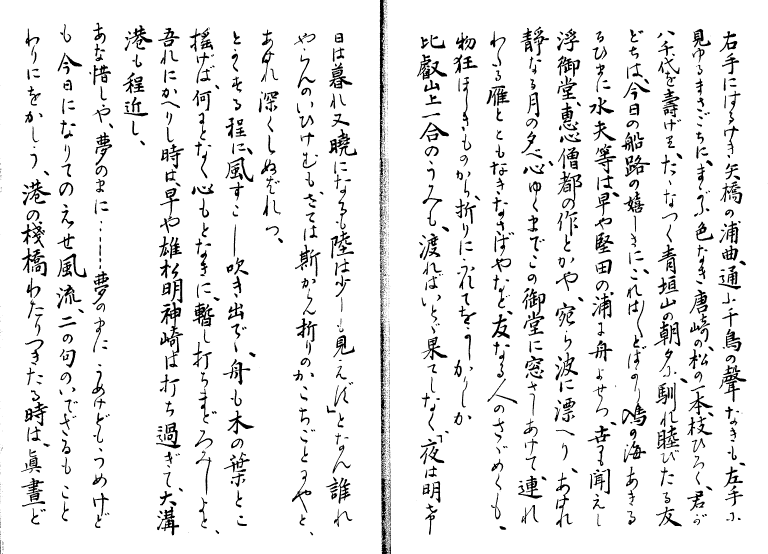 右手にはるけき矢橋の浦曲、通ふ千鳥の聲なきも、左手に
見ゆるまさごぢに、まがふ色なき唐崎の松の一本、枝ひろく、君が
八千代を壽げば、たゝなづく青垣山の朝夕に、馴れ睦びたる友
どちは、今日の船路の嬉しさに、これは〳〵とばかり鳰の海あきる
るひまに水夫等は、早や堅田の浦に舟よせつ、古も聞えし
浮御堂、惠心僧都の作とかや、宛ら波に漂へり、あはれ
靜なる月の夕べ心ゆくまでこの御堂に窓さしあけて、連れ
わたる雁とともなきなさばやなど、友なる人のさゞめくも、
物狂ほしきものから、折りにふれてをかしかりしか
比叡山上一合のうみも、渡ればいとゞ果てしなく、「夜は明け
日は暮れ又曉になるも陸は少しも見えず」となん誰れ
やらんのいひけむも、さては斯からん折りのかこちごとかやと、
あはれ深くしぬばれつ、
とかくする程に、風すこし吹き出でゝ、舟も木の葉とこ
搖げば、何となく心もとなきに、暫し打ちまどろみしまゝ、
吾れにかへりし時は、早や雄松明神崎は打ち過ぎて、大溝
港も程近し、
あな惜しや、夢のまに……夢のまに うめけどもうめけど
も今日になりてのえせ風流、二の句のいでざるもこと
わりにをかしう、港の棧橋わたりつきたる時は、眞晝ど